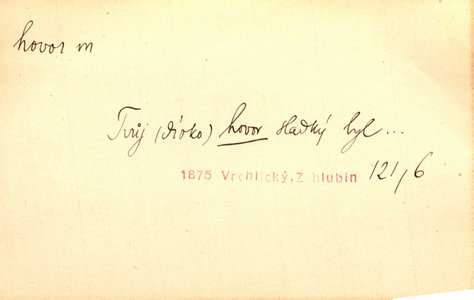 hovor m
Tvůj (dívko) hovor sladký byl...
1875 Vrchlický, Z hlubin 121/6